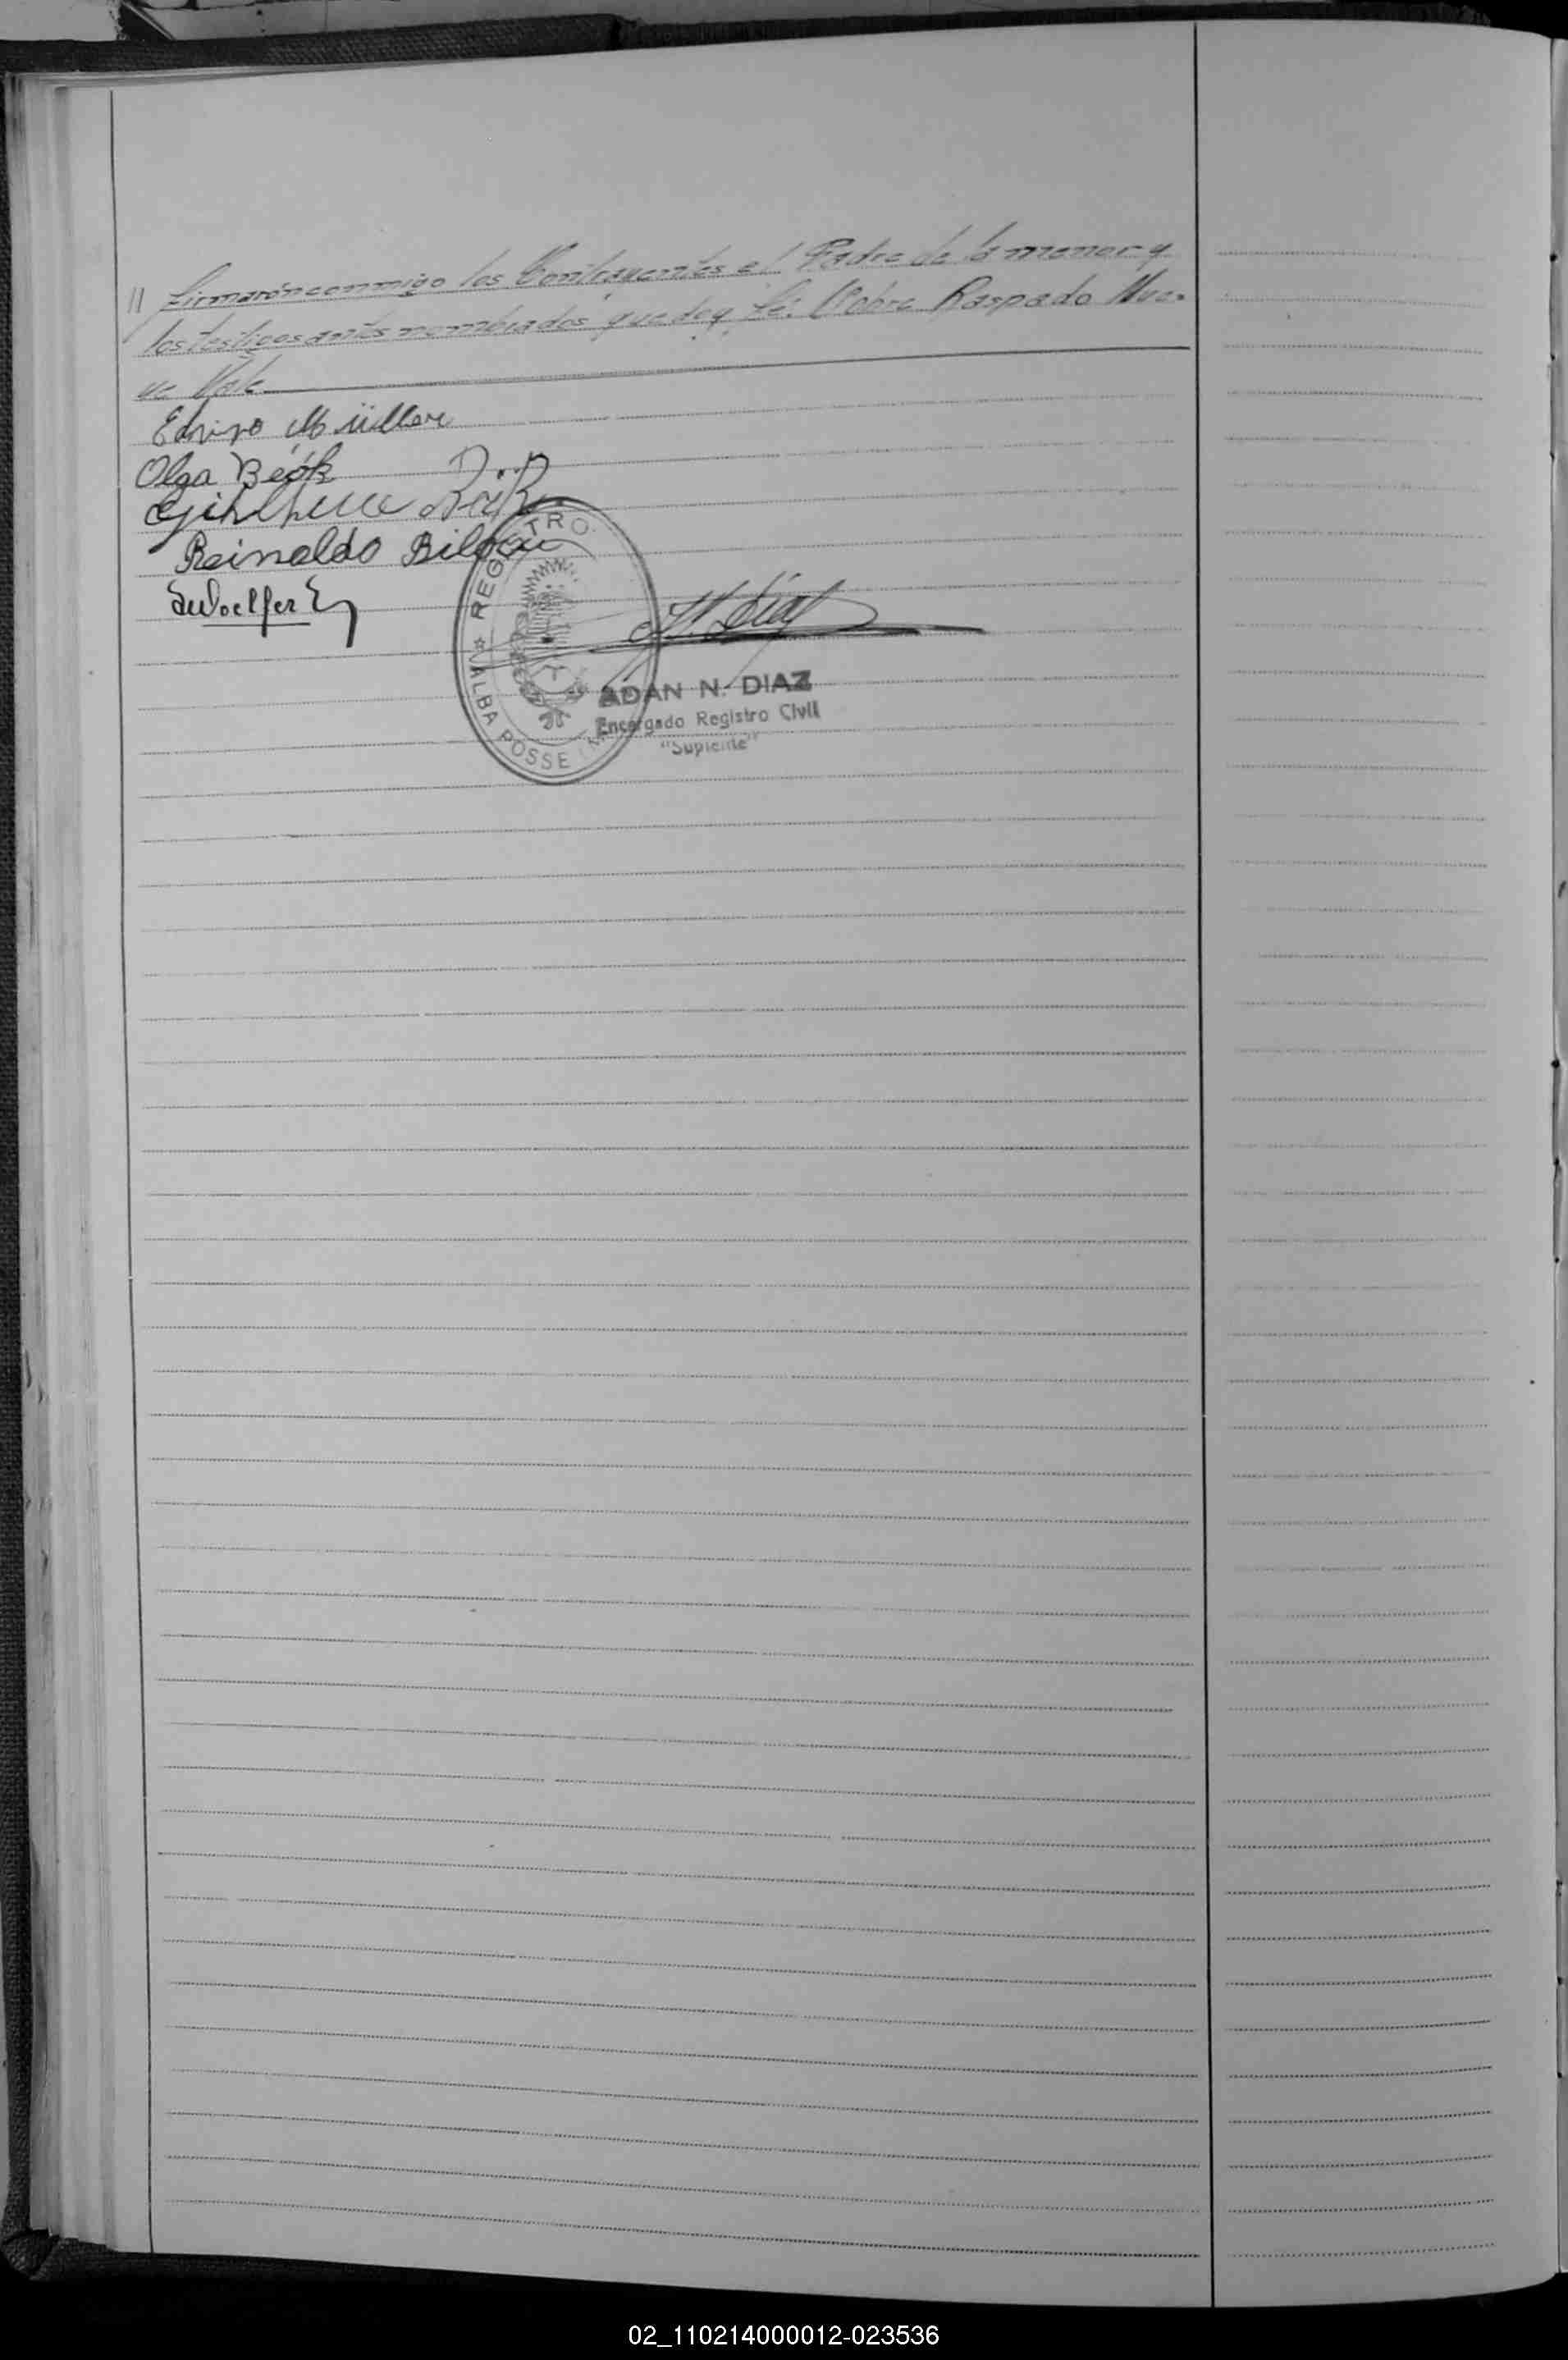 // firmarón conmigo los Contrayentes el Padre de la menor y
los testigos antes nombrados, que doy fé: Sobre Raspado Nue-
ve Vale
Olga Beók
Reinaldo
REGISTRO
ALBA POSSE
ADAN N. DIAZ
Encargado Registro Civil
"Suplente"
02_110214000012-023536